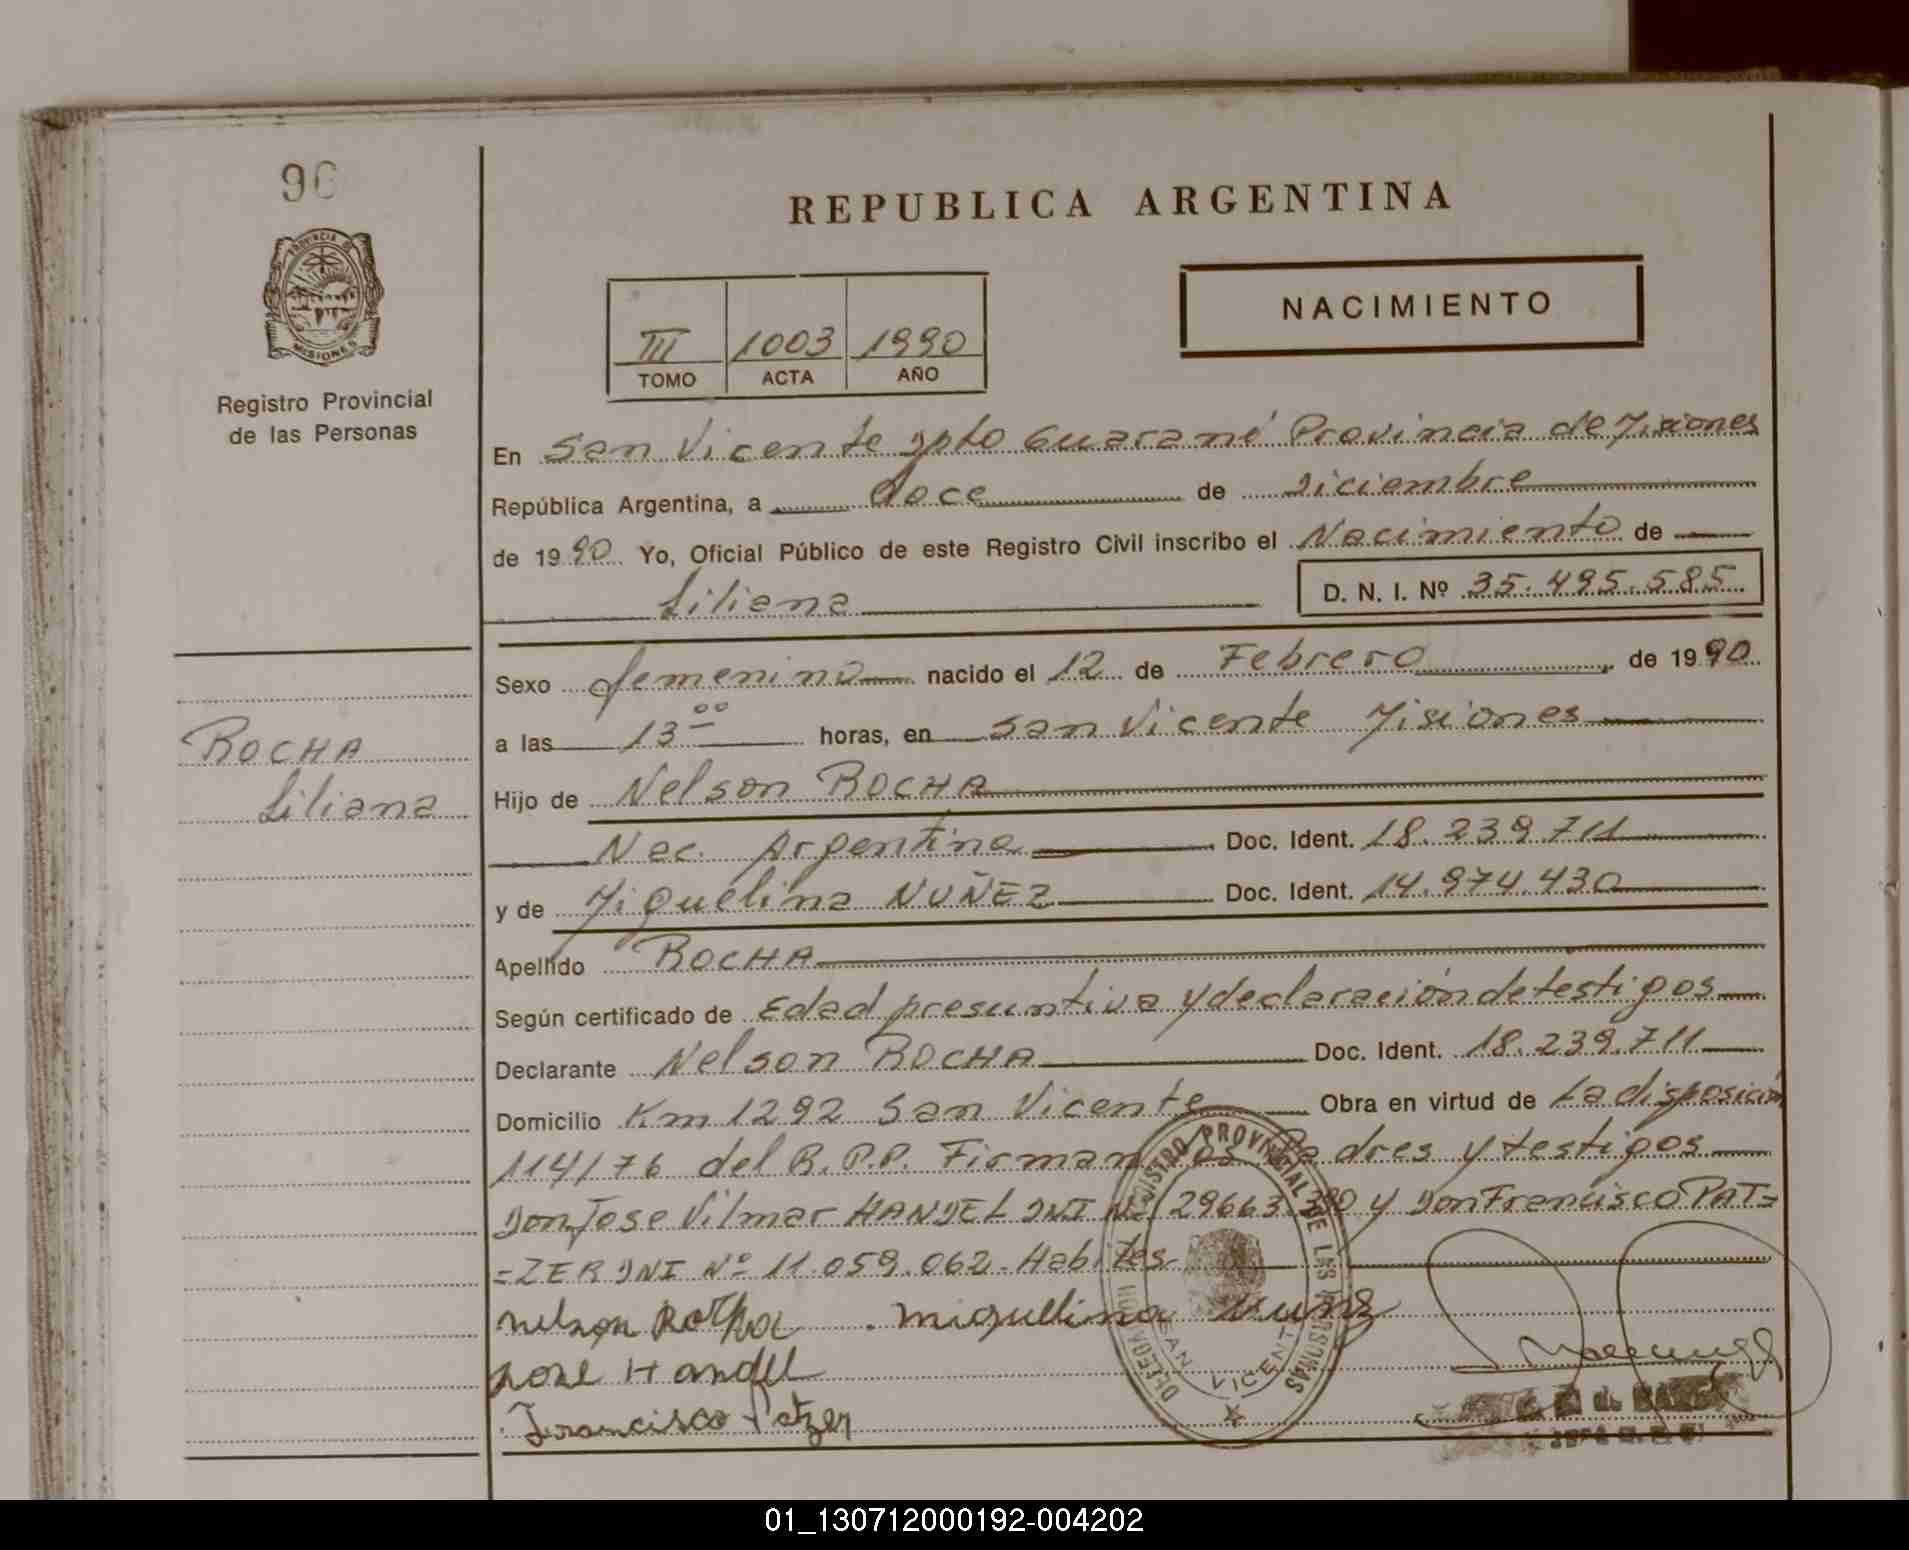 96
PROVINCIA DE
MISIONES
Registro Provincial
de las Personas
ROCHA
Liliana
REPUBLICA ARGENTINA
NACIMIENTO
III 1003 1990
TOMO ACTA AÑO
En San Vicente Dpto Guaraní Provincia de Misiones
República Argentina, a doce de Diciembre
de 1990 Yo, Oficial Público de este Registro Civil inscribo el Nacimiento de
Liliana D. N. I. Nº 35.495.585
Sexo femenino nacido el 12 de Febrero de 1990
a las 13 00 horas, en San Vicente Misiones
Hijo de Nelson ROCHA
Nac. Argentina Doc. Ident. 18.239.711
y de Miguelina NUÑEZ Doc. Ident. 14.974.430
Apellido ROCHA
Según certificado de Edad presuntiva y declaración de testigos
Declarante Nelson ROCHA Doc. Ident. 18.239.711
Domicilio Km 1292 San Vicente Obra en virtud de La disposición
114/76 del R.P.P. Firman los Padres y testigos
Don Jose Vilmar HANDEL DNI Nº 29663.390 y Don Francisco PAT=
=ZER DNI Nº 11.059.062. Habiles
Nelson Rocha . Miguelina Nunez
Jose Handel
Francisco Patzer
REGISTRO PROVINCIAL DE LAS PERSONAS
SAN VICENTE
01_130712000192-004202